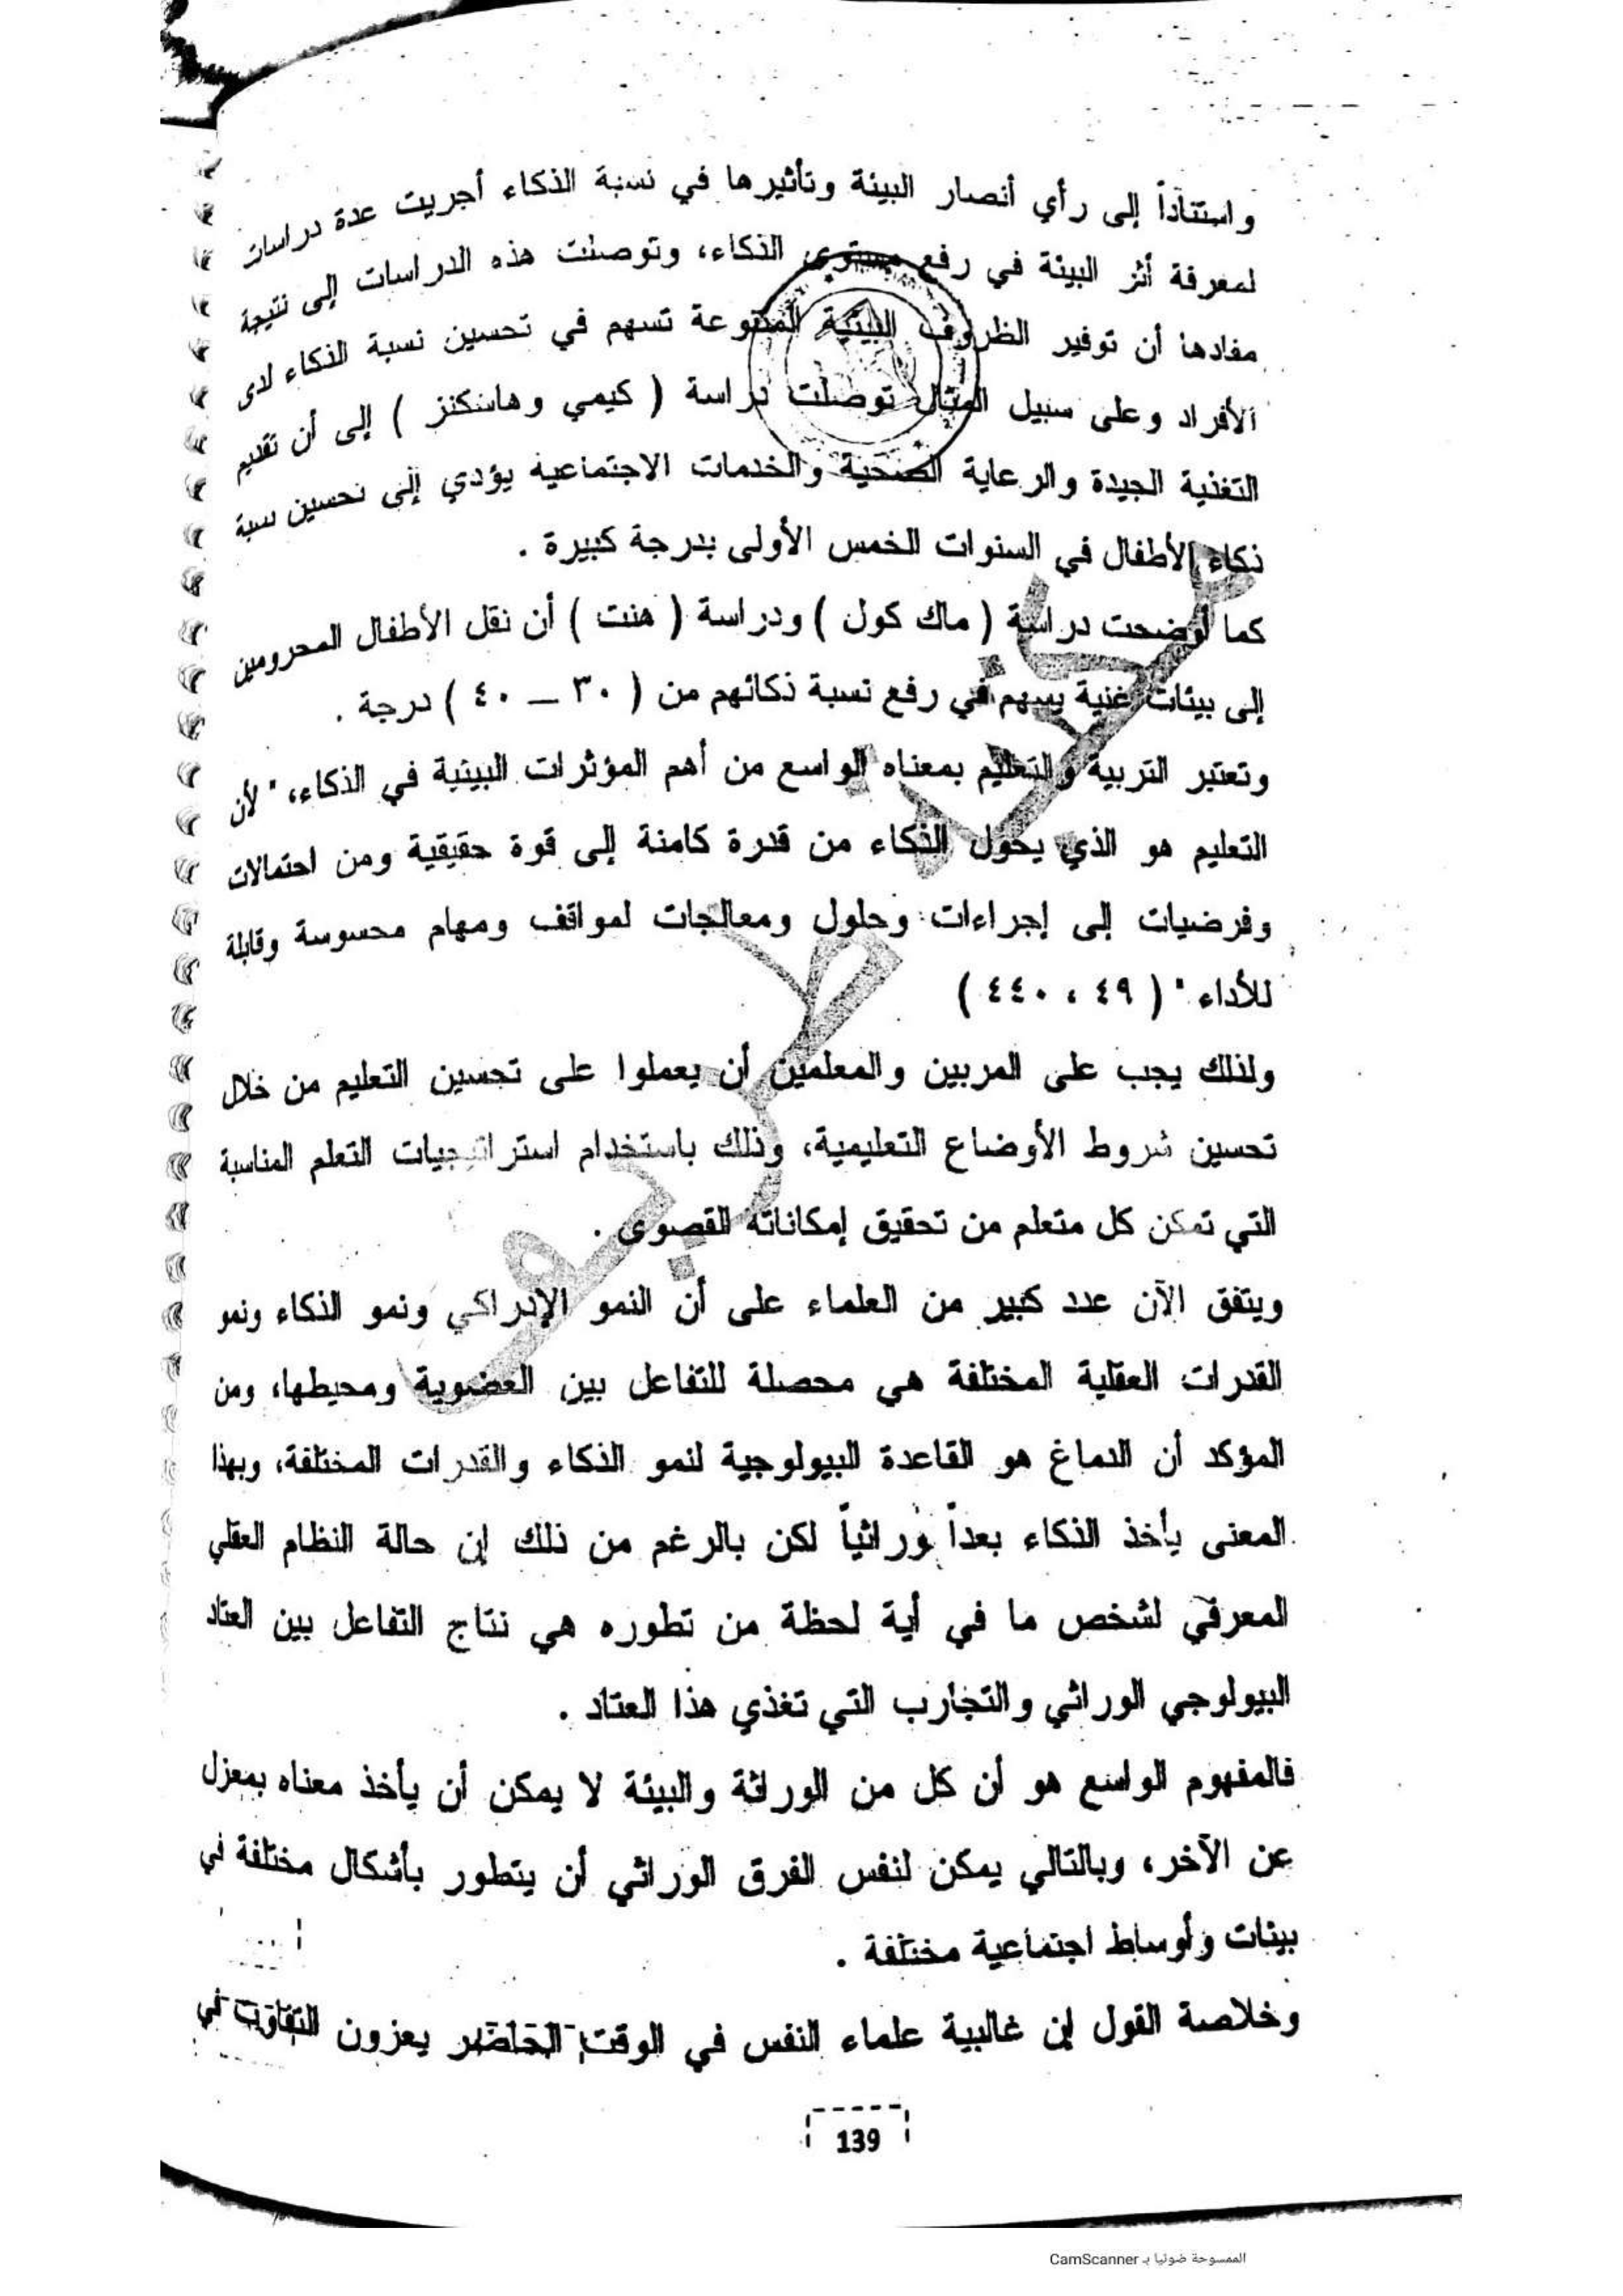 واستناداً إلى رأي أنصار البيئة وتأثيرها في نسبة الذكاء أجريت عدة دراسات
لمعرفة أثر البيئة في رفع مستوى الذكاء، وتوصلت هذه الدراسات إلى نتيجة
مفادها أن توفير الظروف البيئية المتنوعة تسهم في تحسين نسبة الذكاء لدى
الأفراد وعلى سبيل المثال توصلت دراسة ( كيمي وهاسكنز ) إلى أن تقديم
التغذية الجيدة والرعاية الصحية والخدمات الاجتماعية يؤدي إلى تحسين نسبة
ذكاء الأطفال في السنوات الخمس الأولى بدرجة كبيرة .
كما أوضحت دراسة ( ماك كول ) ودراسة ( هنت ) أن نقل الأطفال المحرومين
إلى بيئات غنية يسهم في رفع نسبة ذكائهم من ( ٣٠ – ٤٠ ) درجة .
وتعتبر التربية والتعليم بمعناه الواسع من أهم المؤثرات البيئية في الذكاء، " لأن
التعليم هو الذي يحول الذكاء من قدرة كامنة إلى قوة حقيقية ومن احتمالات
وفرضيات إلى إجراءات وحلول ومعالجات لمواقف ومهام محسوسة وقابلة
للأداء " ( ٤٩ ، ٤٤٠ )
ولذلك يجب على المربين والمعلمين أن يعملوا على تحسين التعليم من خلال
تحسين شروط الأوضاع التعليمية، وذلك باستخدام استراتيجيات التعلم المناسبة
التي تمكن كل متعلم من تحقيق إمكاناته القصوى .
ويتفق الآن عدد كبير من العلماء على أن النمو الإدراكي ونمو الذكاء ونمو
القدرات العقلية المختلفة هي محصلة للتفاعل بين العضوية ومحيطها، ومن
المؤكد أن الدماغ هو القاعدة البيولوجية لنمو الذكاء والقدرات المختلفة، وبهذا
المعنى يأخذ الذكاء بعداً وراثياً لكن بالرغم من ذلك إن حالة النظام العقلي
المعرفي لشخص ما في أية لحظة من تطوره هي نتاج التفاعل بين العتاد
البيولوجي الوراثي والتجارب التي تغذي هذا العتاد .
فالمفهوم الواسع هو أن كل من الوراثة والبيئة لا يمكن أن يأخذ معناه بمعزل
عن الآخر، وبالتالي يمكن لنفس الفرق الوراثي أن يتطور بأشكال مختلفة في
بيئات وأوساط اجتماعية مختلفة .
وخلاصة القول إن غالبية علماء النفس في الوقت الحاضر يعزون التفاوت في
139
الممسوحة ضوئيا بـ CamScanner